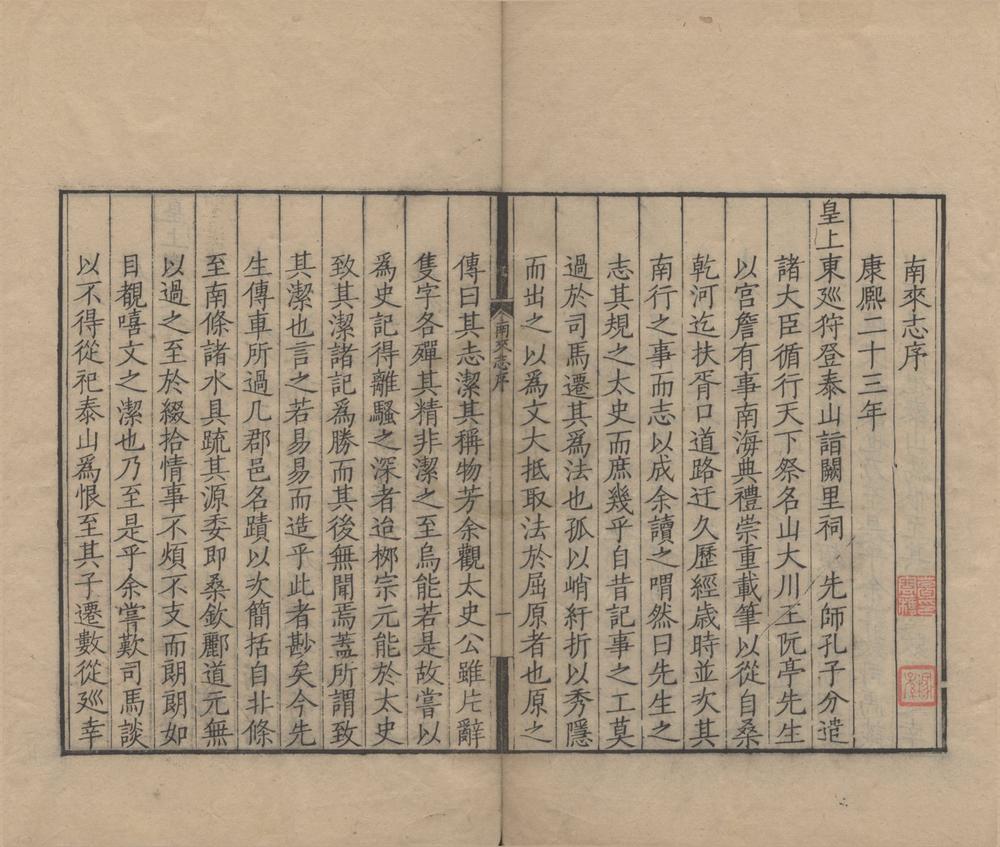 南來志序
康熈二十三年
皇上東廵狩登泰山詣闕里祠　先師孔子分遣
諸大臣循行天下祭名山大川王阮亭先生
以宫詹有事南海典禮崇重載筆以從自桑
乾河迄扶胥口道路迂久歷經歳時並次其
南行之事而志以成余讀之喟然曰先生之
志其規之太史而庶幾乎自昔記事之工莫
過於司馬遷其為法也孤以峭紆折以秀隱
而出之以爲文大抵取法於屈原者也原之
南來志序
一
傳曰其志潔其稱物芳余觀太史公雖片辭
隻字各殫其精非潔之至烏能若是故嘗以
爲史記得離騷之深者迨栁宗元能於太史
致其潔諸記爲勝而其後無聞焉蓋所謂致
其潔也言之若易易而造乎此者尠矣今先
生傳車所過几郡邑名蹟以次簡括自北條
至南條諸水具䟽其源委即桑欽酈道元無
以過之至於綴拾情事不煩不支而朗朗如
目覩嘻文之潔也乃至是乎余嘗歎司馬談
以不得從祀泰山爲恨至其子遷數從廵幸